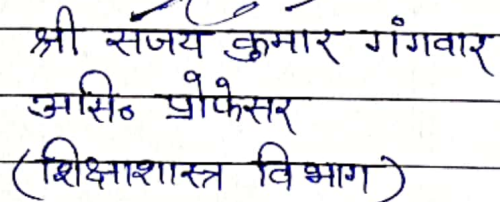 श्री संजय कुमार गंगवार
असि० प्रोफेसर
(शिक्षाशास्त्र विभाग)